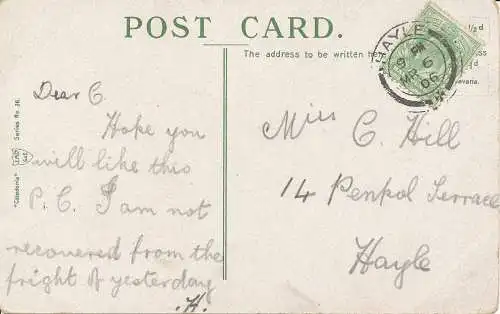 POST CARD.
The address to be written here
½d
d
avaria.
HAYLE
9
06
"Caledonia" Series No 36.
Dear C.
Hope you
will like this
P.C. I am not
recovered from the
fright of yesterday
.H.
Miss C. Hill
14 Penpol Terrace
Hayle